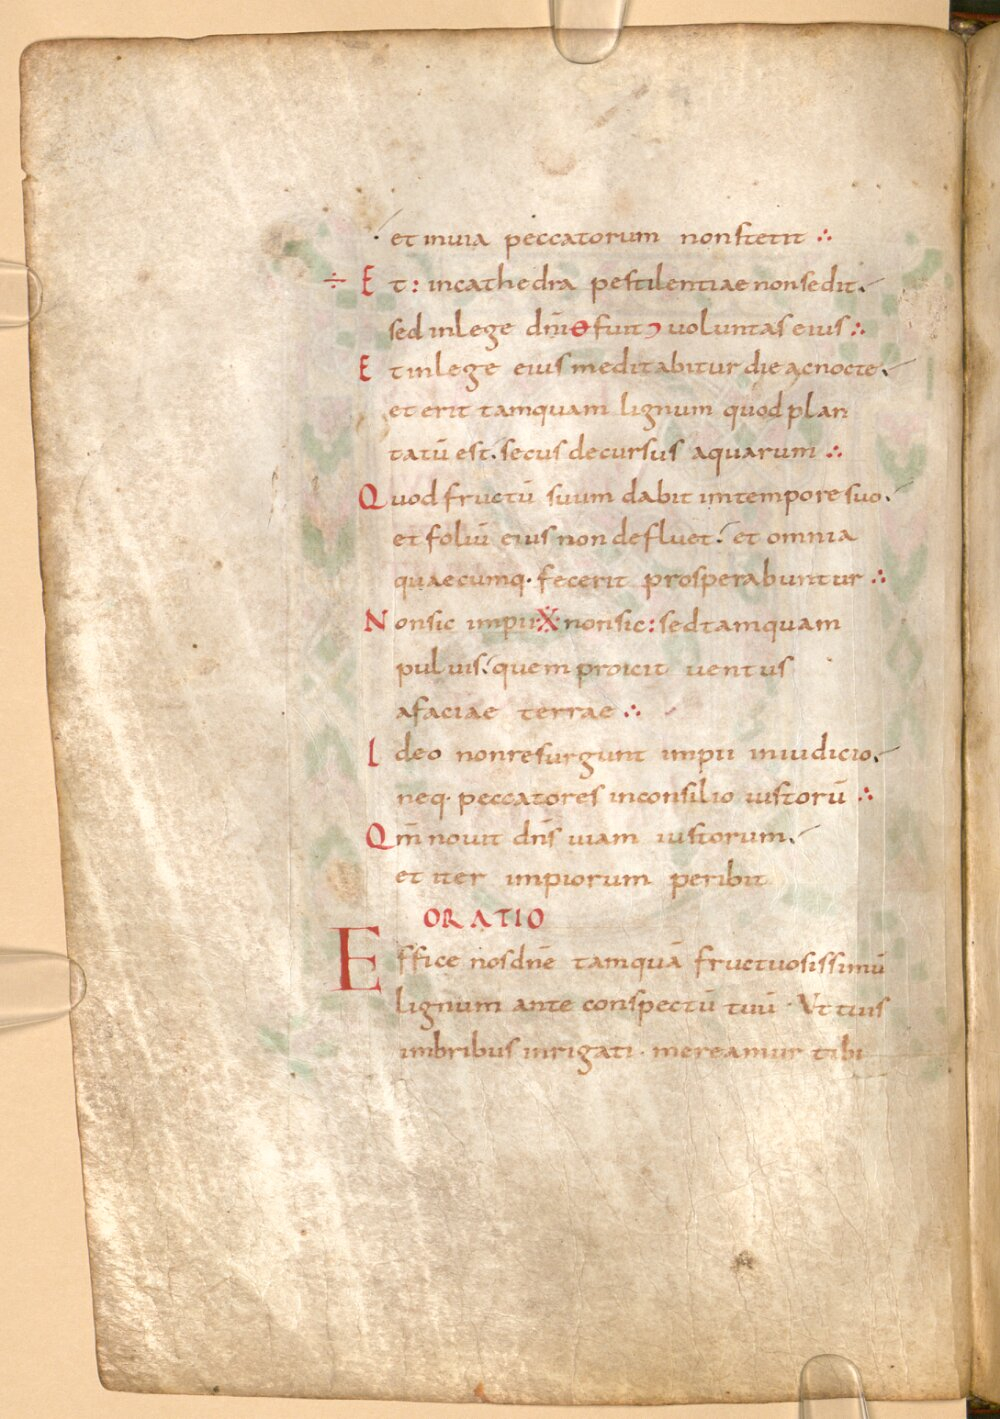 et in uia peccatorum non stetit ∴
÷ Et: in cathedra pestilentiae non sedit.
sed in lege dn̄i ɵ fuit ɔ uoluntas eius ∴
Et in lege eius meditabitur die ac nocte.
et erit tamquam lignum quod plan
tatū est. secus decursus aquarum ∴
Quod fructū suum dabit in tempore suo.
et foliū eius non defluet. et omnia
quaecumq· fecerit prosperabuntur ∴
Non sic impii X non sic: sed tamquam
puluis. quem proicit uentus
a faciae terrae ∴
Ideo non resurgunt impii in iudicio.
neq· peccatores in consilio iustorū ∴
Qm̄ nouit dn̄s uiam iustorum.
et iter impiorum peribit
ORATIO
Effice nos dn̄e tamquā fructuosissimū
lignum ante conspectū tuū · Ut tuis
imbribus inrigati · mereamur tibi